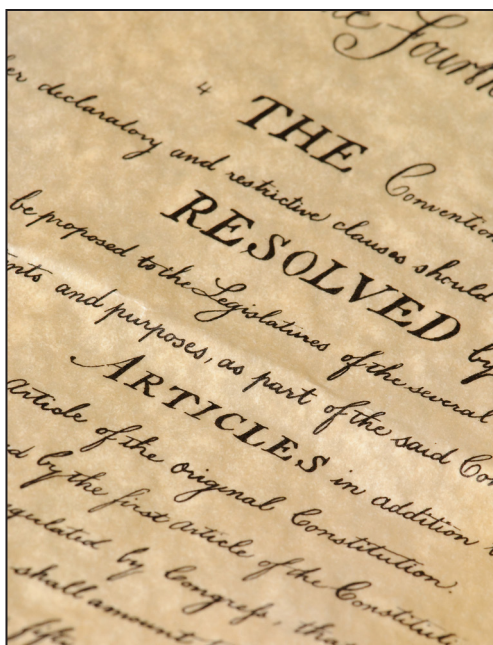 Fourth
4 THE Convention
declaratory and restrictive clauses should
RESOLVED by
be proposed to the Legislatures of the several
and purposes, as part of the said
ARTICLES in addition
Article of the original Constitution.
by the first Article of the
by Congress, that
shall amount